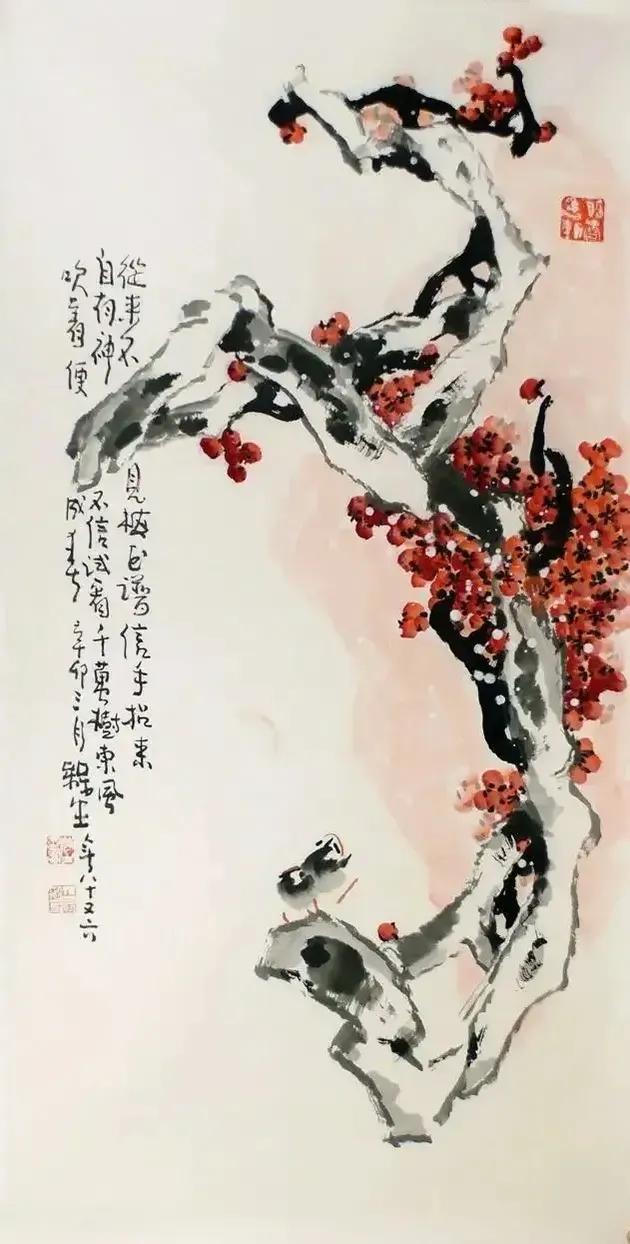 從来不見梅花譜信手拈来
自有神不信试看千萬樹東風
吹着便成春 辛卯三月 生
年八十又六